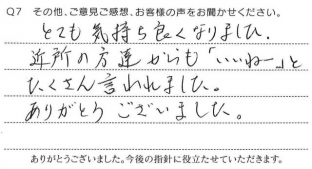 Q7 その他、ご意見ご感想、お客様の声をお聞かせください。
とても気持ち良くなりました.
近所の方達からも「いいねー」と
たくさん言われました。
ありがとうございました。
ありがとうございました。今後の指針に役立たせていただきます。